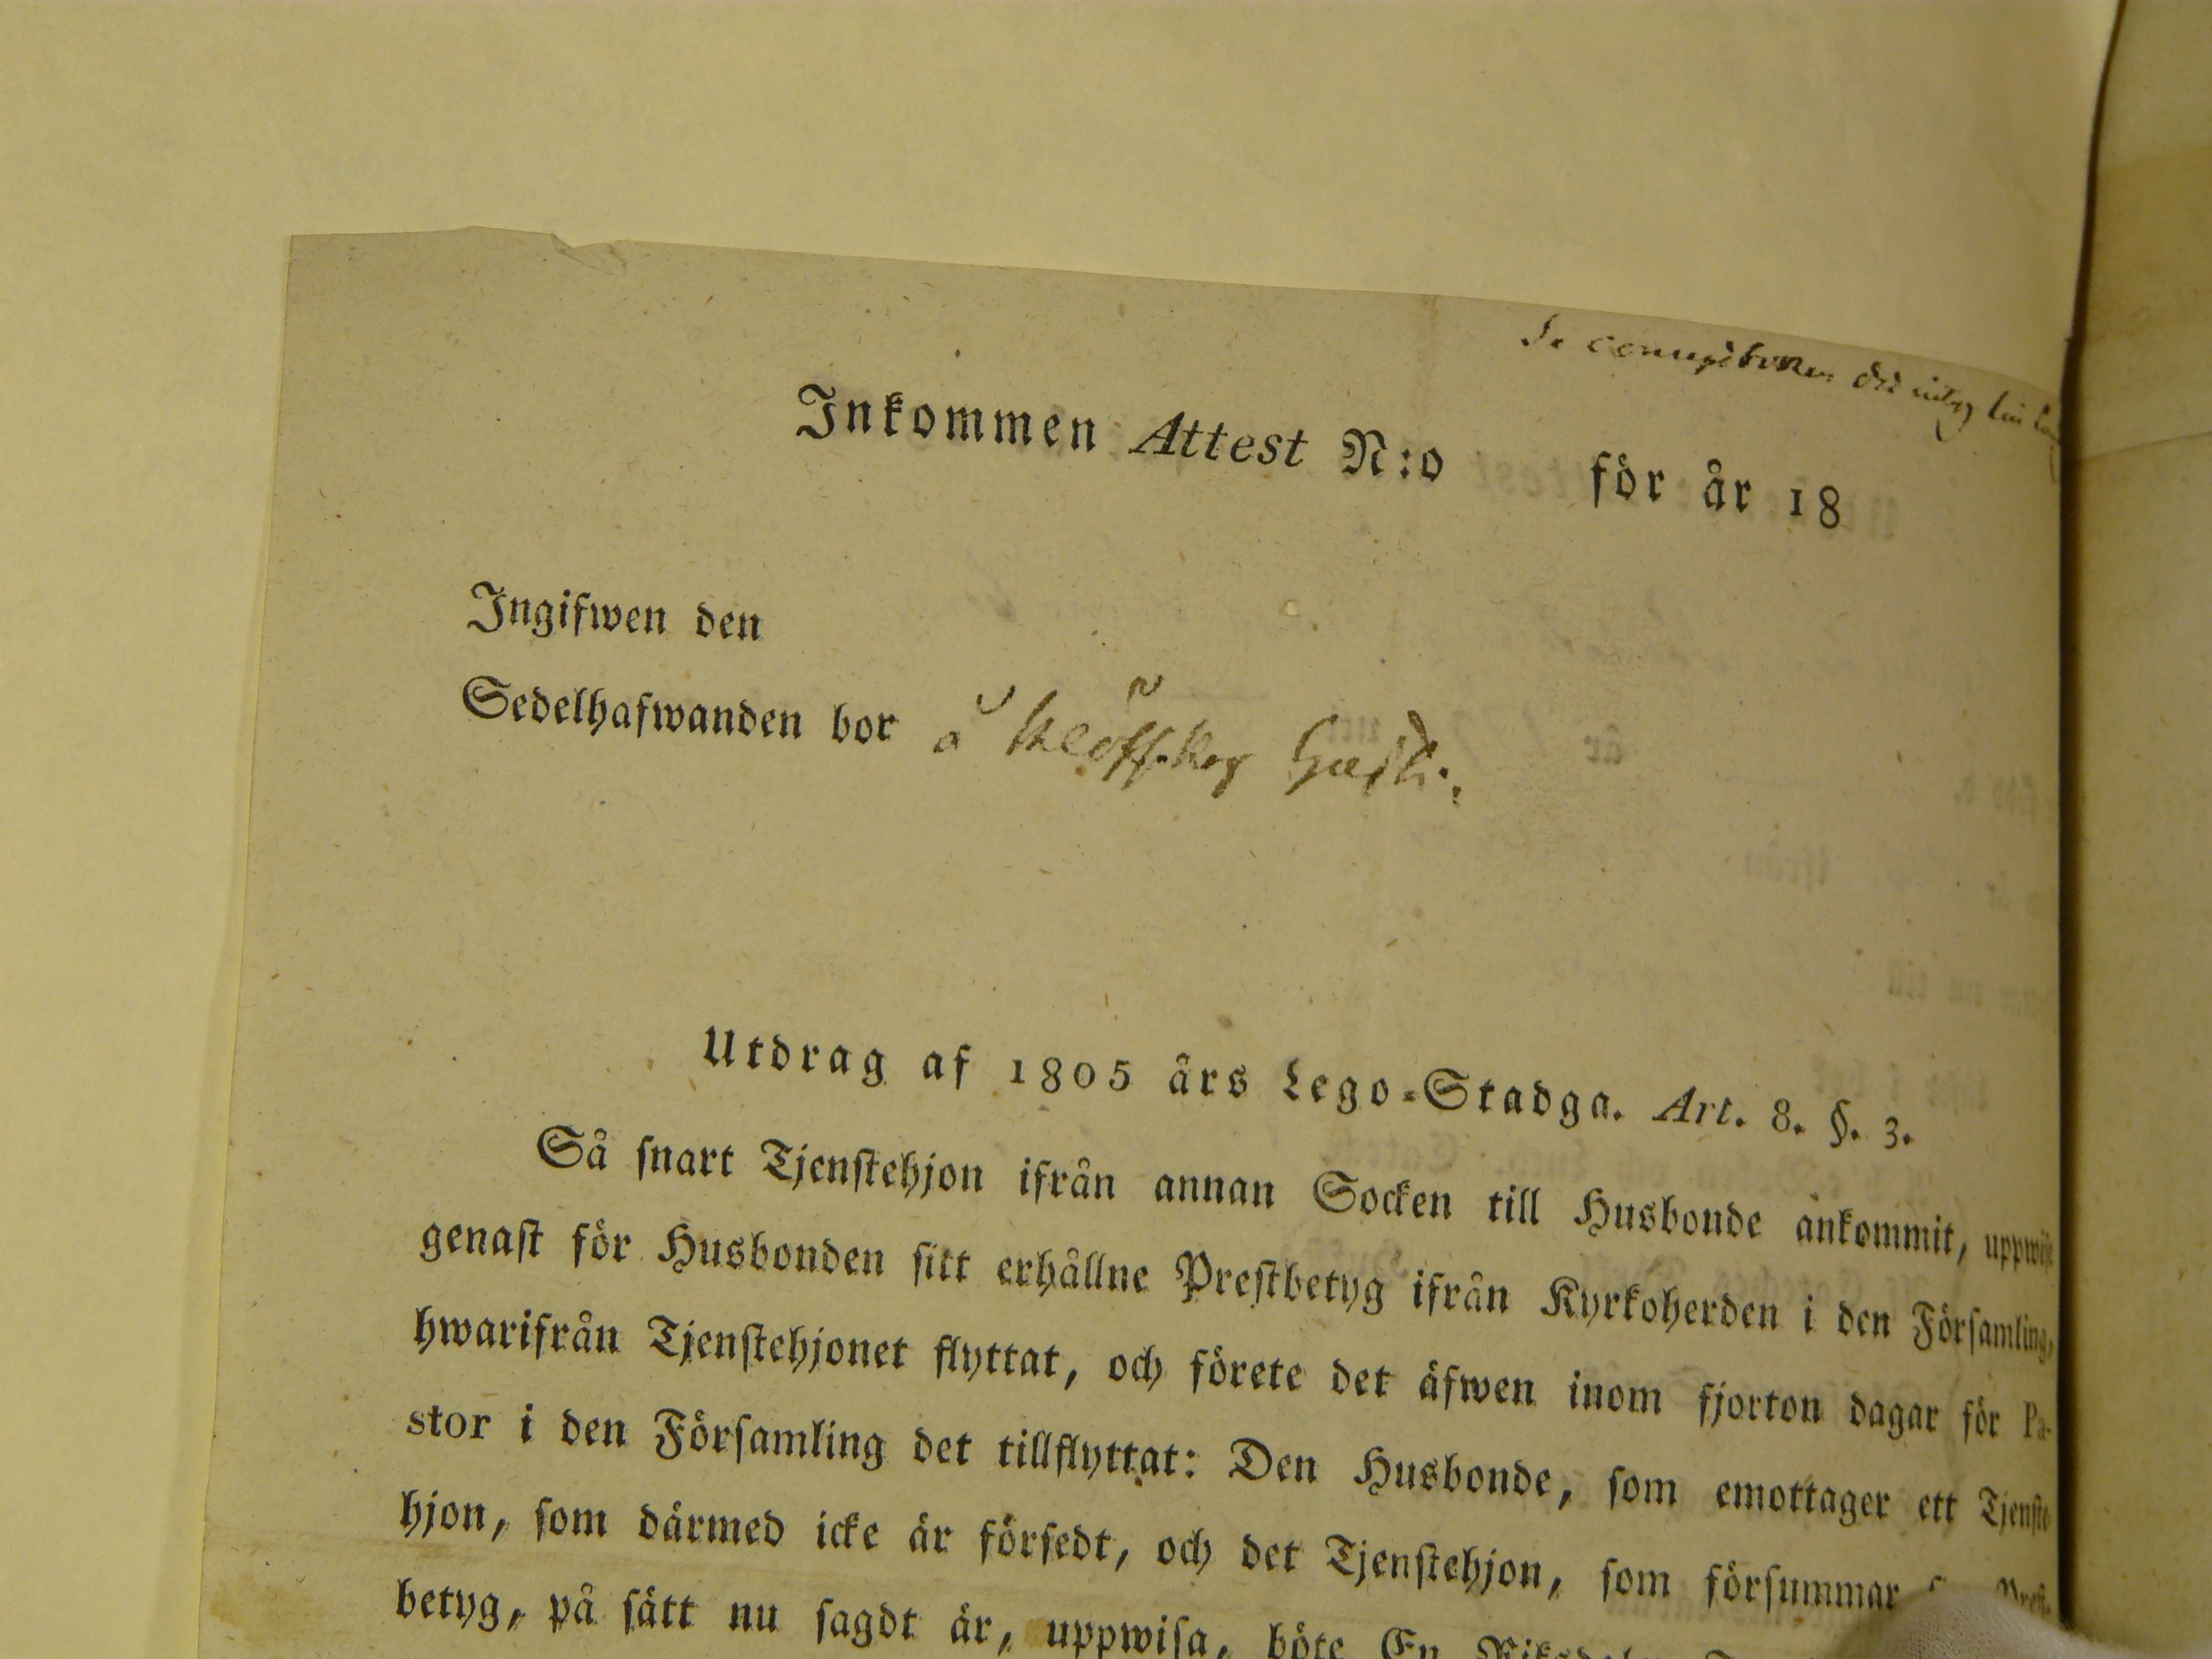 Inkommen Attest N:o för år 18
Ingifwen den
Sedelhafwanden bor å
Utdrag af 1805 års Lego-Stadga. Art. 8. §. 3.
Så snart Tjenstehjon ifrån annan Socken till Husbonde ankommit,
genast för Husbonden sitt erhållne Prestbetyg ifrån Kyrkoherden i den Församling,
hwarifrån Tjenstehjonet flyttat, och förete det äfwen inom fjorton dagar för Pa-
stor i den Församling det tillflyttat: Den Husbonde, som emottager ett Tjenste-
hjon, som därmed icke är försedt, och det Tjenstehjon, som försummar
betyg, på sätt nu sagdt är, uppwisa, böte En